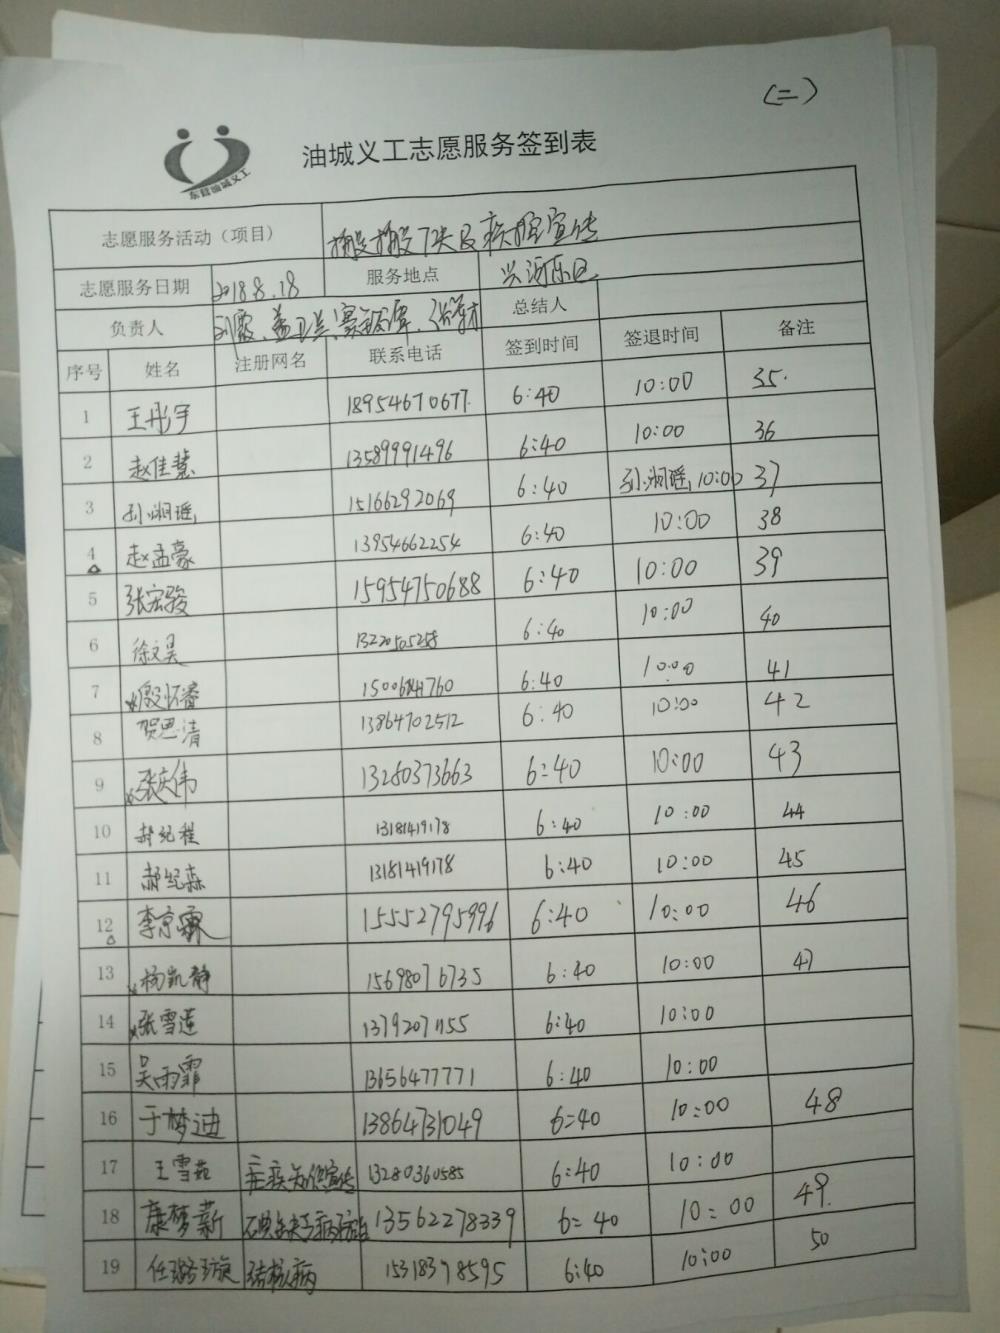 (二)
油城义工志愿服务签到表
东营油城义工
志愿服务活动（项目） 宣传
志愿服务日期 2018.8.18 服务地点 兴河东区
负责人 总结人
序号 姓名 注册网名 联系电话 签到时间 签退时间 备注
1 王彤宇 18954670677. 6:40 10:00 35.
2 赵佳慧 13589991496 6:40 10:00 36
3 孙湘瑶 15166292069 6:40 孙湘瑶 10:00 37
4 赵孟豪 13954662254 6:40 10:00 38
5 张宏骏 15954750688 6:40 10:00 39
6 徐文昊 6:40 10:00 40
7 殷怀睿 6:40 10:00 41
8 贺思清 13864702512 6:40 10:00 42
9 张庆伟 13280373663 6:40 10:00 43
10 郝纪程 13181419178 6:40 10:00 44
11 郝纪森 13181419178 6:40 10:00 45
12 李京霖 15552795996 6:40 10:00 46
13 杨凯静 15698076735 6:40 10:00 47
14 张雪莲 13792071155 6:40 10:00
15 吴雨霏 13656477771 6:40 10:00
16 于梦迪 13864731049 6:40 10:00 48
17 王雪苑 宣传 13280360585 6:40 10:00
18 康梦薪 13562278339 6:40 10:00 49.
19 任璐璇 结核病 15318378595 6:40 10:00 50